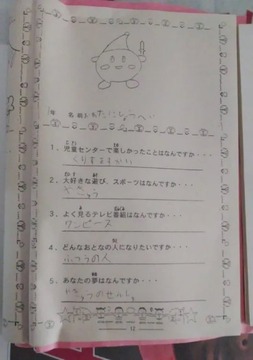 1. 児童センターで楽しかったことはなんですか・・・
くりすますかい
2. 大好きな遊び、スポーツはなんですか・・・
やきゅう
3. よく見るテレビ番組はなんですか・・・
ワンピース
4. どんなおとなの人になりたいですか・・・
ふつうの人
5. あなたの夢はなんですか・・・
やきゅうのせんしゅ